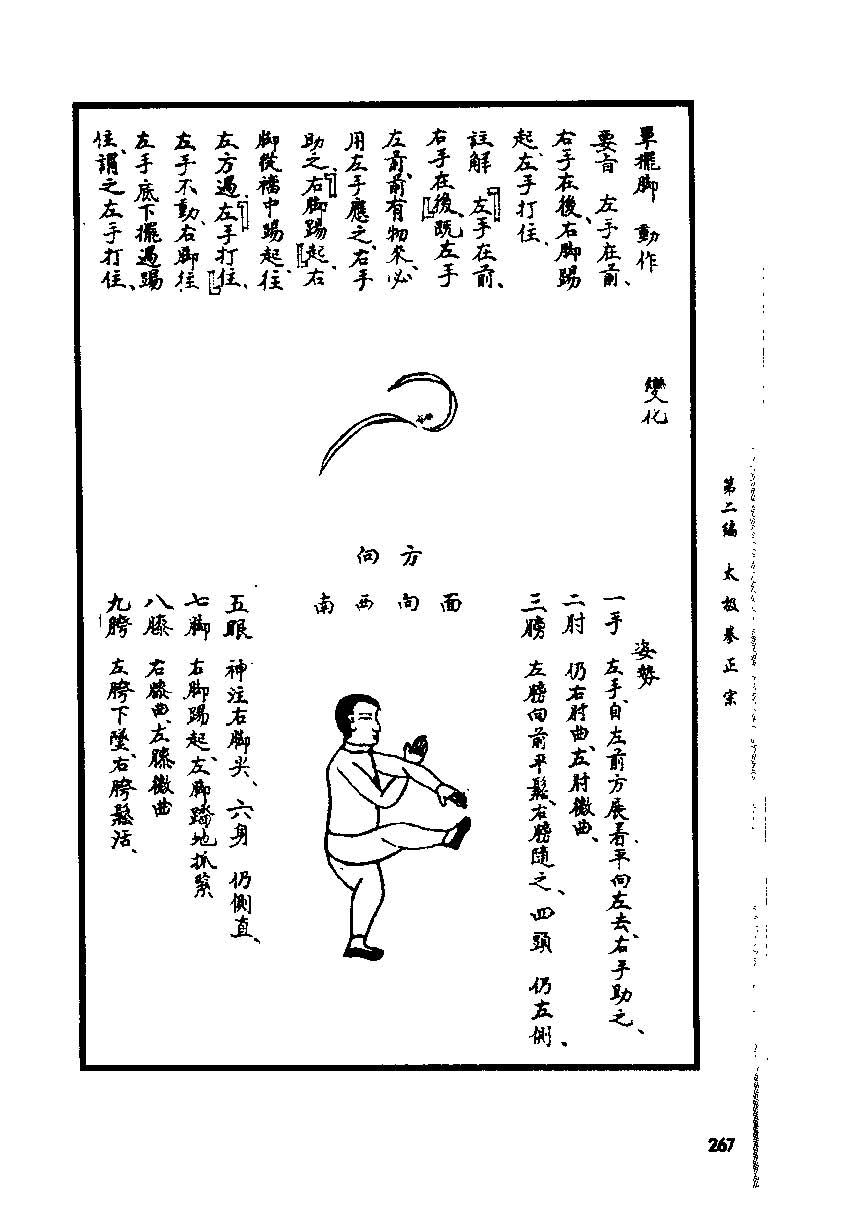 單擺脚 動作
要旨 左手在前、
右手在後、右脚踢
起、左手打住、
註解 「左手在前、
右手在後、」既左手
左前、前有物來、必
用左手應之、右手
助之、「右脚踢起、」右
脚從襠中踢起、往
左方過、「左手打住、」
左手不動、右脚往
左手底下擺過踢
住、謂之左手打住、
變化
方向
面向西南
姿勢
一手 左手、自左前方展着平向左去、右手助之、
二肘 仍右肘曲、左肘微曲、
三膀 左膀向前平鬆、右膀隨之、四頭 仍左側、
五眼 神注右脚尖、六身 仍側直、
七脚 右脚踢起、左脚蹯地抓緊
八膝 右膝曲、左膝微曲
九胯 左胯下墜、右胯鬆活、
第二編 太极拳正宗
267